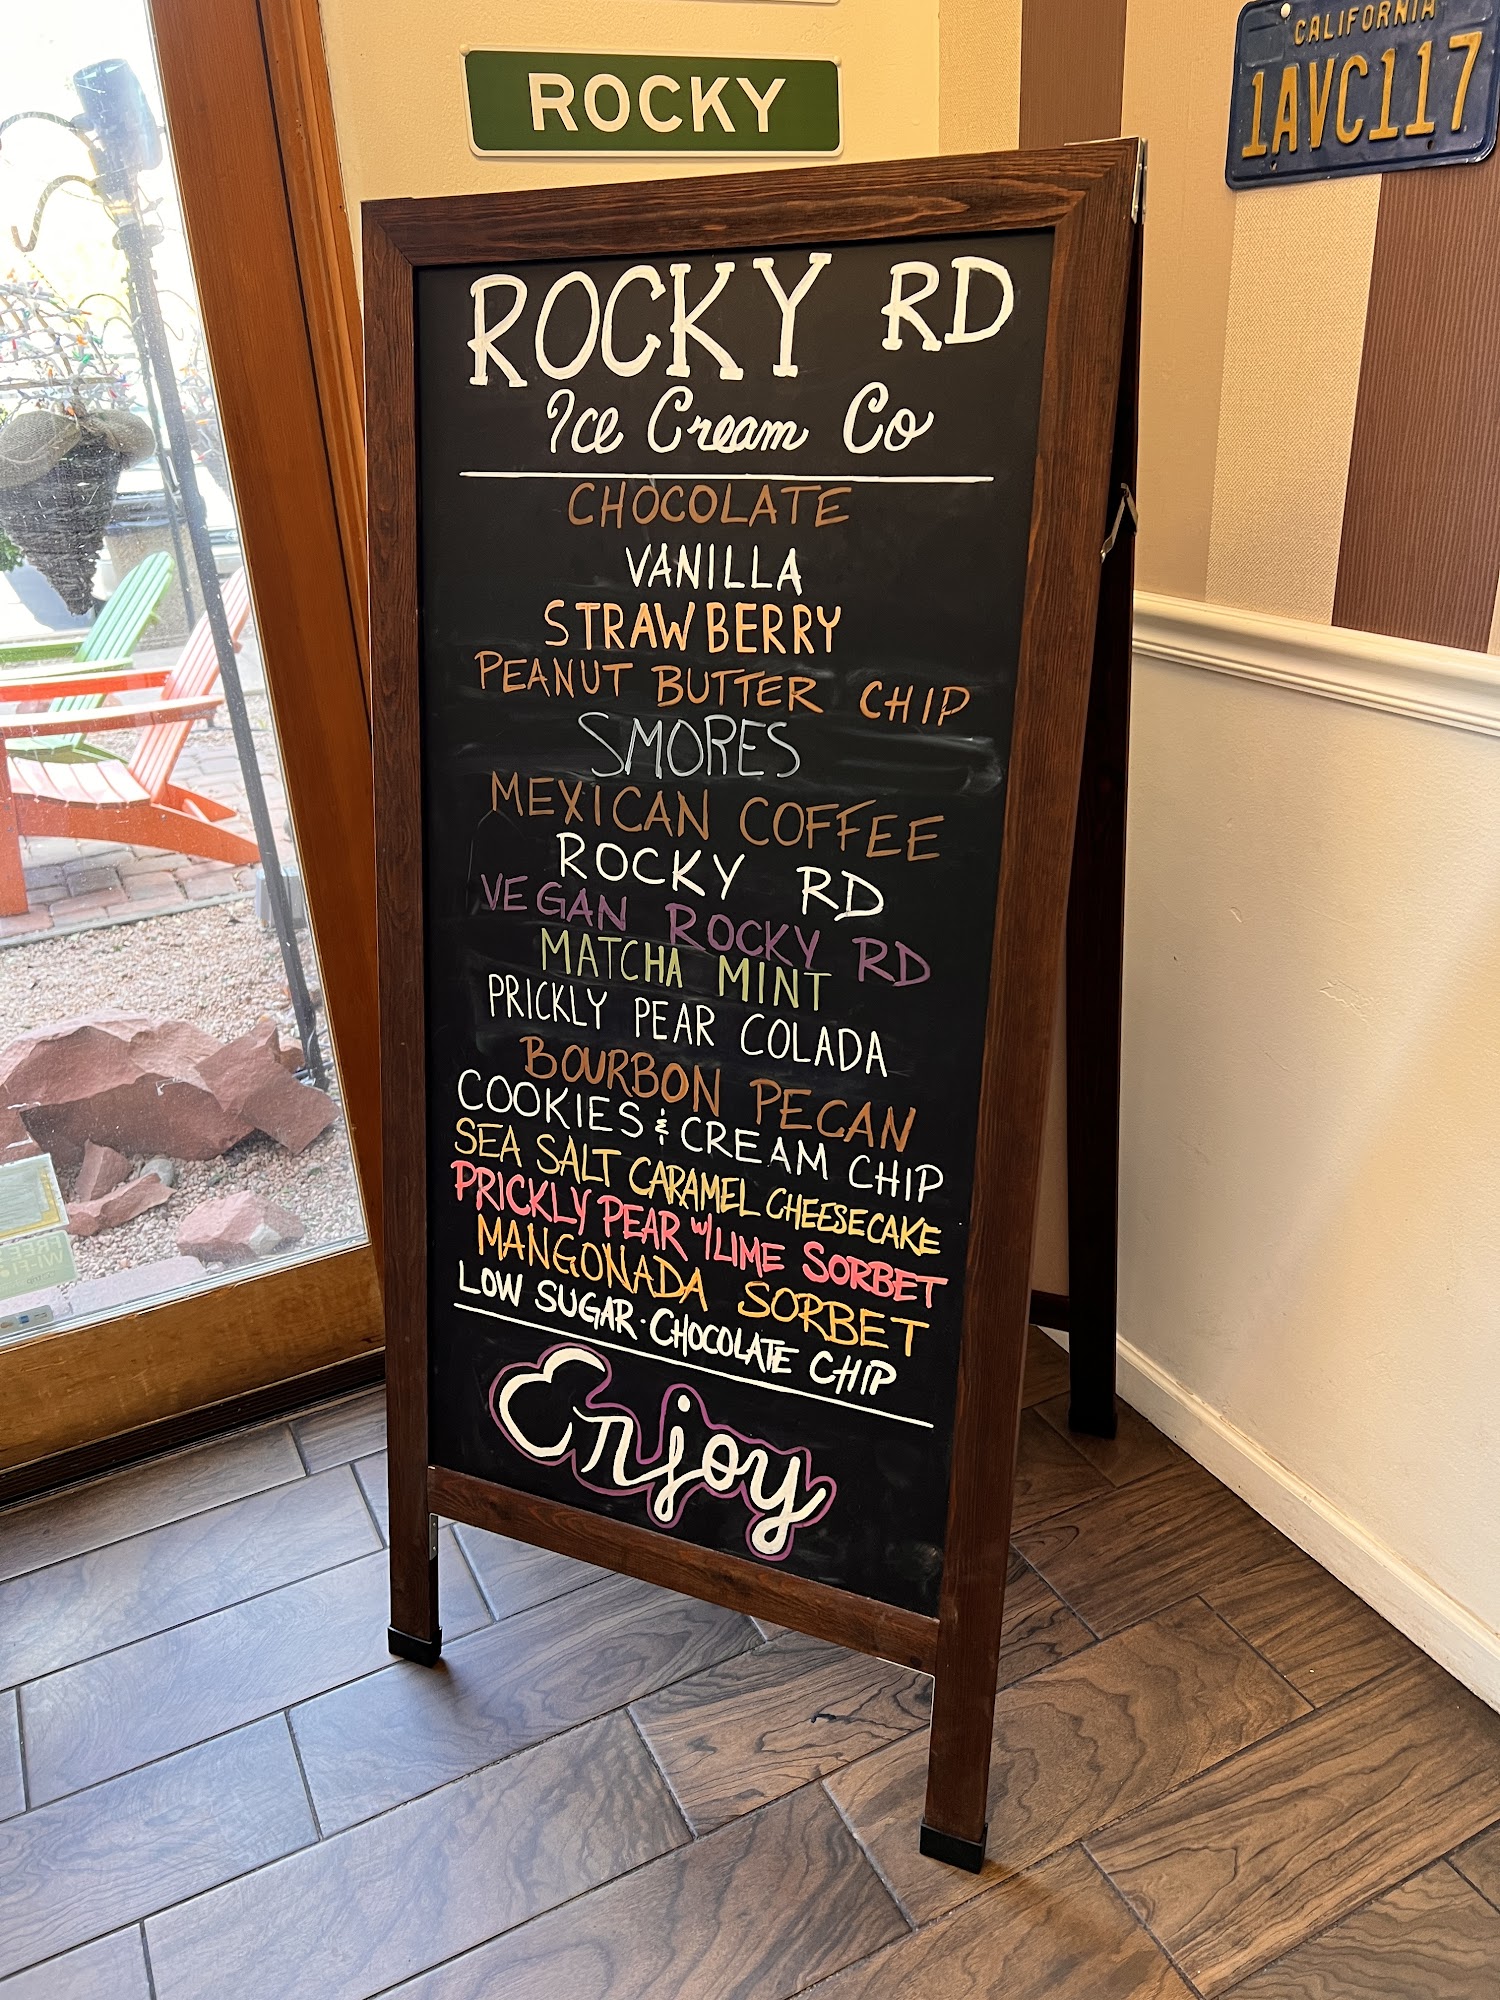 ROCKY
CALIFORNIA
1AVC117
ROCKY RD
Ice Cream Co
CHOCOLATE
VANILLA
STRAWBERRY
PEANUT BUTTER CHIP
SMORES
MEXICAN COFFEE
ROCKY RD
VEGAN ROCKY RD
MATCHA MINT
PRICKLY PEAR COLADA
BOURBON PECAN
COOKIES & CREAM CHIP
SEA SALT CARAMEL CHEESECAKE
PRICKLY PEAR w/LIME SORBET
MANGONADA SORBET
LOW SUGAR·CHOCOLATE CHIP
Enjoy
FREE
WI-FI